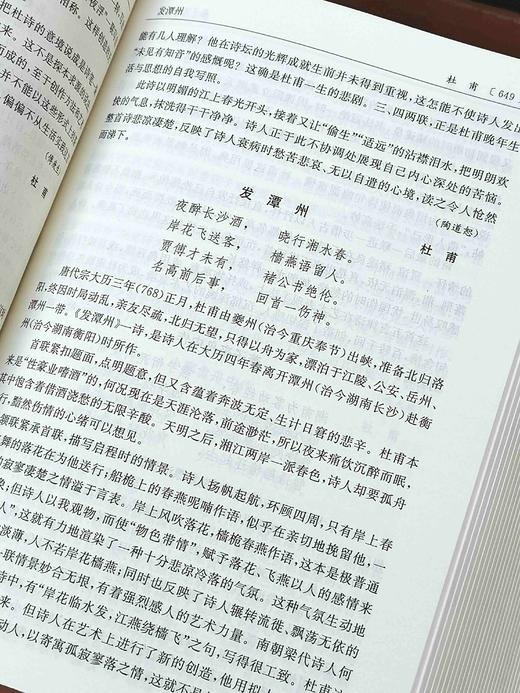 发潭州
杜 甫 〔649
能有几人理解？他在诗坛的光辉成就生前并未得到重视，这怎能不使诗人发出
“未见有知音”的感慨呢？这确是杜甫一生的悲剧。三、四两联，正是杜甫晚年生
活与思想的自我写照。
此诗以明媚的江上春光开头，接着又让“偷生”“适远”的沾襟泪水，把明朗欢
快的气息，抹洗得干干净净。诗人正于此不协调处展现自己内心深处的苦恼。
整首诗悲凉凄楚，反映了诗人衰病时愁苦悲哀、无以自遣的心境，读之令人怆然
而涕下。
（陶道恕）
发 潭 州
杜 甫
夜醉长沙酒， 晓行湘水春。
岸花飞送客， 樯燕语留人。
贾傅才未有， 褚公书绝伦。
名高前后事， 回首一伤神。
唐代宗大历三年(768)正月，杜甫由夔州(治今重庆奉节)出峡，准备北归洛
阳，终因时局动乱，亲友尽疏，北归无望，只得以舟为家，漂泊于江陵、公安、岳州、
潭州一带。《发潭州》一诗，是诗人在大历四年春离开潭州(治今湖南长沙)赴衡
州(治今湖南衡阳)时所作。
首联紧扣题面，点明题意，但又含蕴着奔波无定、生计日窘的悲辛。杜甫本
来是“性豪业嗜酒”的，何况现在是天涯沦落，前途渺茫，所以夜来痛饮沉醉而眠，
其中饱含着借酒浇愁的无限辛酸。天明之后，湘江两岸一派春色，诗人却要孤舟
行，黯然伤情的心绪可以想见。
颔联紧承首联，描写启程时的情景。诗人扬帆起航，环顾四周，只有岸上春
舞的落花在为他送行；船桅上的春燕呢喃作语，似乎在亲切地挽留他，一
的寂寥凄楚之情溢于言表。岸上风吹落花，樯桅春燕作语，这本是极普通
象，但诗人以我观物，而使“物色带情”，赋予落花、飞燕以人的感情来
人”，这就有力地渲染了一种十分悲凉冷落的气氛。这种气氛生动地
淡薄，人不若岸花樯燕；同时也反映了诗人辗转流徙、飘荡无依的
一联情景妙合无垠，有着强烈感人的艺术力量。南朝梁代诗人何
诗中，有“岸花临水发，江燕绕樯飞”之句，写得很工致。杜甫
来。但诗人在艺术上进行了新的创造，他用拟人
动人，以寄寓孤寂寥落之情，这就不是